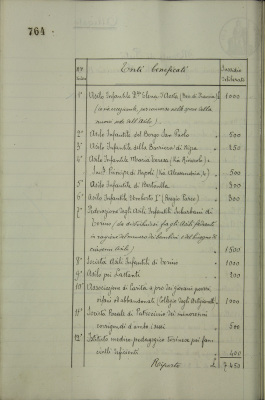 764
N° d'ordine
Enti beneficati
Sussidio deliberato
1° Asilo Infantile D.ssa Elena d'Aosta
(a riconferma,
anno all'Asilo) 1000
2° Asilo Infantile del Borgo San Paolo " 500
3° Asilo Infantile della Barriera di Nizza " 250
4° Asilo Infantile Maria Teresa
Ind. Principe di Napoli (Via Alessandria) " 500
5° Asilo Infantile di Bertoulla " 300
6° Asilo Infantile Umberto I° (Regio Parco) " 300
7° Federazione degli Asili Infantili Suburbani di
Torino (da distribuirsi fra gli Asili federati
in ragione del numero dei bambini e del bisogno di
ciascun Asilo) " 1500
8° Società Asili Infantili di Torino " 1000
9° Asilo pei Lattanti "
10° Associazione di Carità a pro dei giovani poveri,
orfani ed abbandonati (Collegio degli Artigianelli) " 1000
11° Società Reale di Patrocinio dei minorenni
corrigendi d'ambo i sessi " 500
12° Istituto medico pedagogico torinese pei fan-
ciulli deficienti " 400
Riporto L. 7450